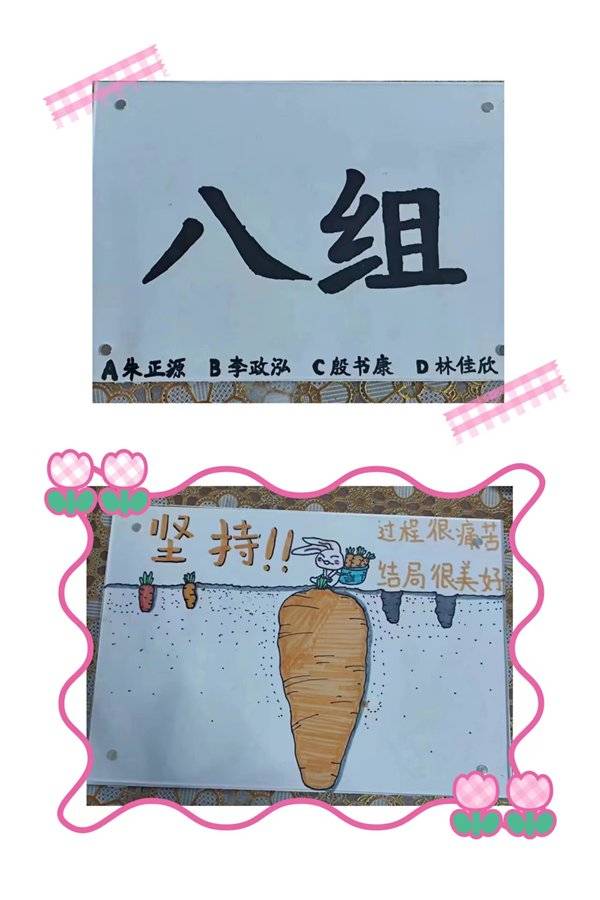 八组
A朱正源 B李政泓 C殷书康 D林佳欣
坚持!!
过程很痛苦
结局很美好